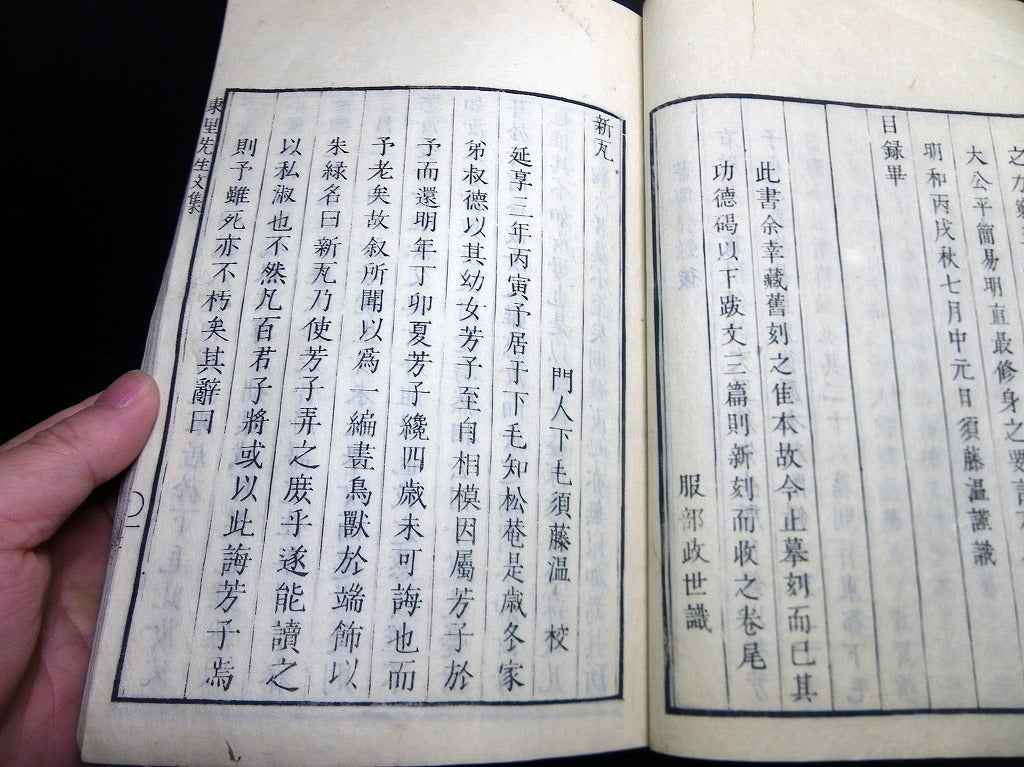 大公平簡易明直最修身之要言
明和丙戌秋七月中元日須藤溫謹識
目録畢
此書余幸藏舊刻之隹本故今止摹刻而已其
功德碣以下跋文三篇則新刻而收之卷尾
服部政世識
新瓦
門人下毛須藤溫 校
延享三年丙寅予居于下毛知松菴是歲冬家
弟叔德以其幼女芳子至自相模因屬芳子於
予而還明年丁卯夏芳子纔四歲未可誨也而
予老矣故叙所聞以爲一編畫鳥獸於端飾以
朱緑名曰新瓦乃使芳子弄之庻乎遂能讀之
以私淑也不然凡百君子將或以此誨芳子焉
則予雖死亦不朽矣其辭曰
東里先生文集